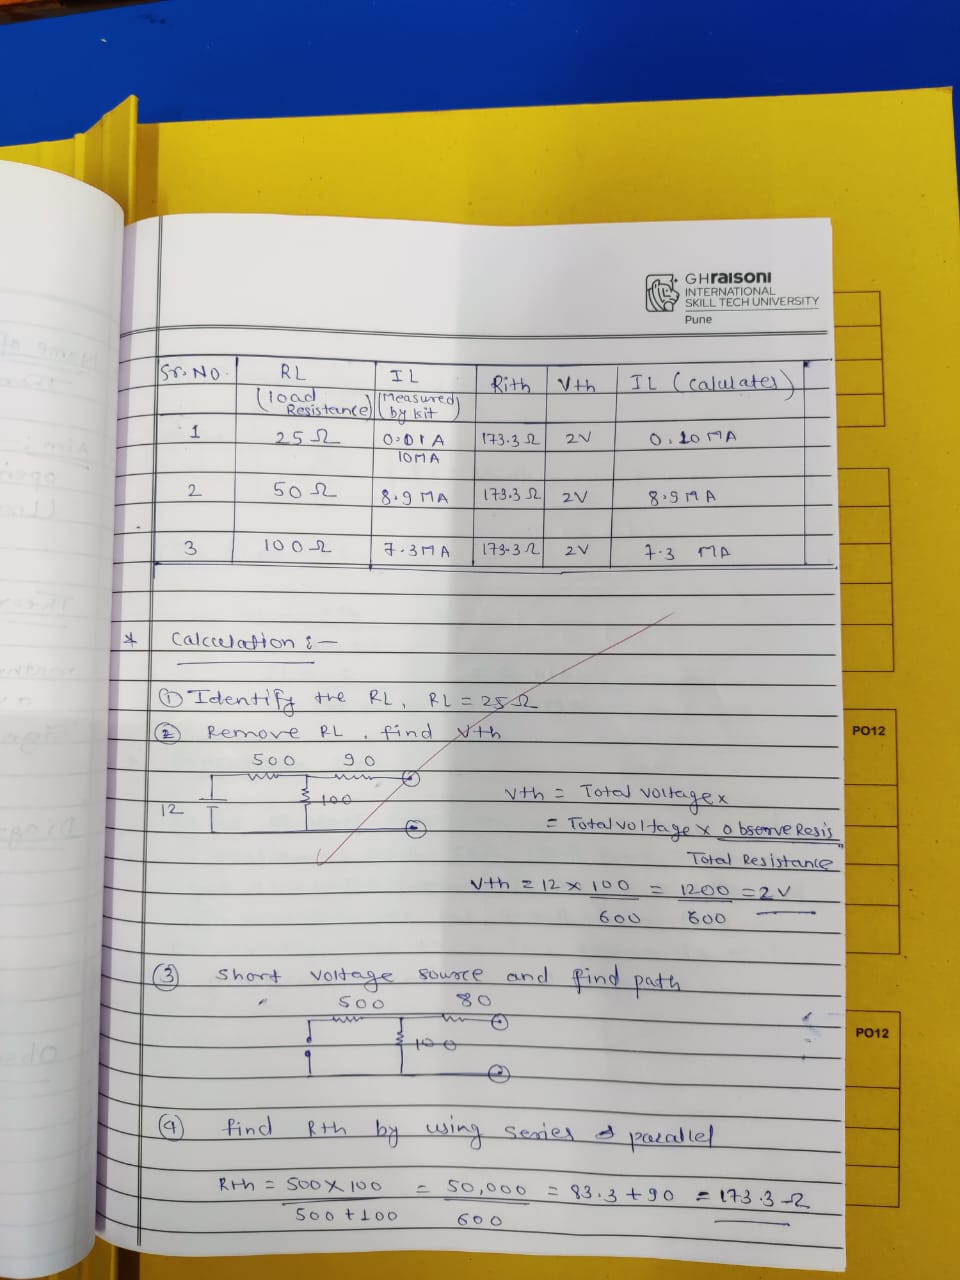 GHraisoni
INTERNATIONAL
SKILL TECH UNIVERSITY
Pune
Sr. No. RL (load Resistance) IL (Measured by kit) Rith Vth IL (Calulates)
1 25 Ω 0.01 A 10MA 173.3 Ω 2V 0.10 MA
2 50 Ω 8.9 MA 173.3 Ω 2V 8.9 MA
3 100 Ω 7.3 MA 173.3 Ω 2V 7.3 MA
* Calculation :-
① Identify the RL, RL = 25 Ω
② Remove RL, find Vth
500 90
12 100
Vth = Total voltage x
= Total voltage x observe Resis
Total Resistance
Vth = 12 x 100 = 1200 = 2V
600 600
③ Short voltage source and find path
500 80
100
④ find Rth by using series & parallel
Rth = 500 X 100 = 50,000 = 83.3 + 90 = 173.3 Ω
500 + 100 600
PO12
PO12